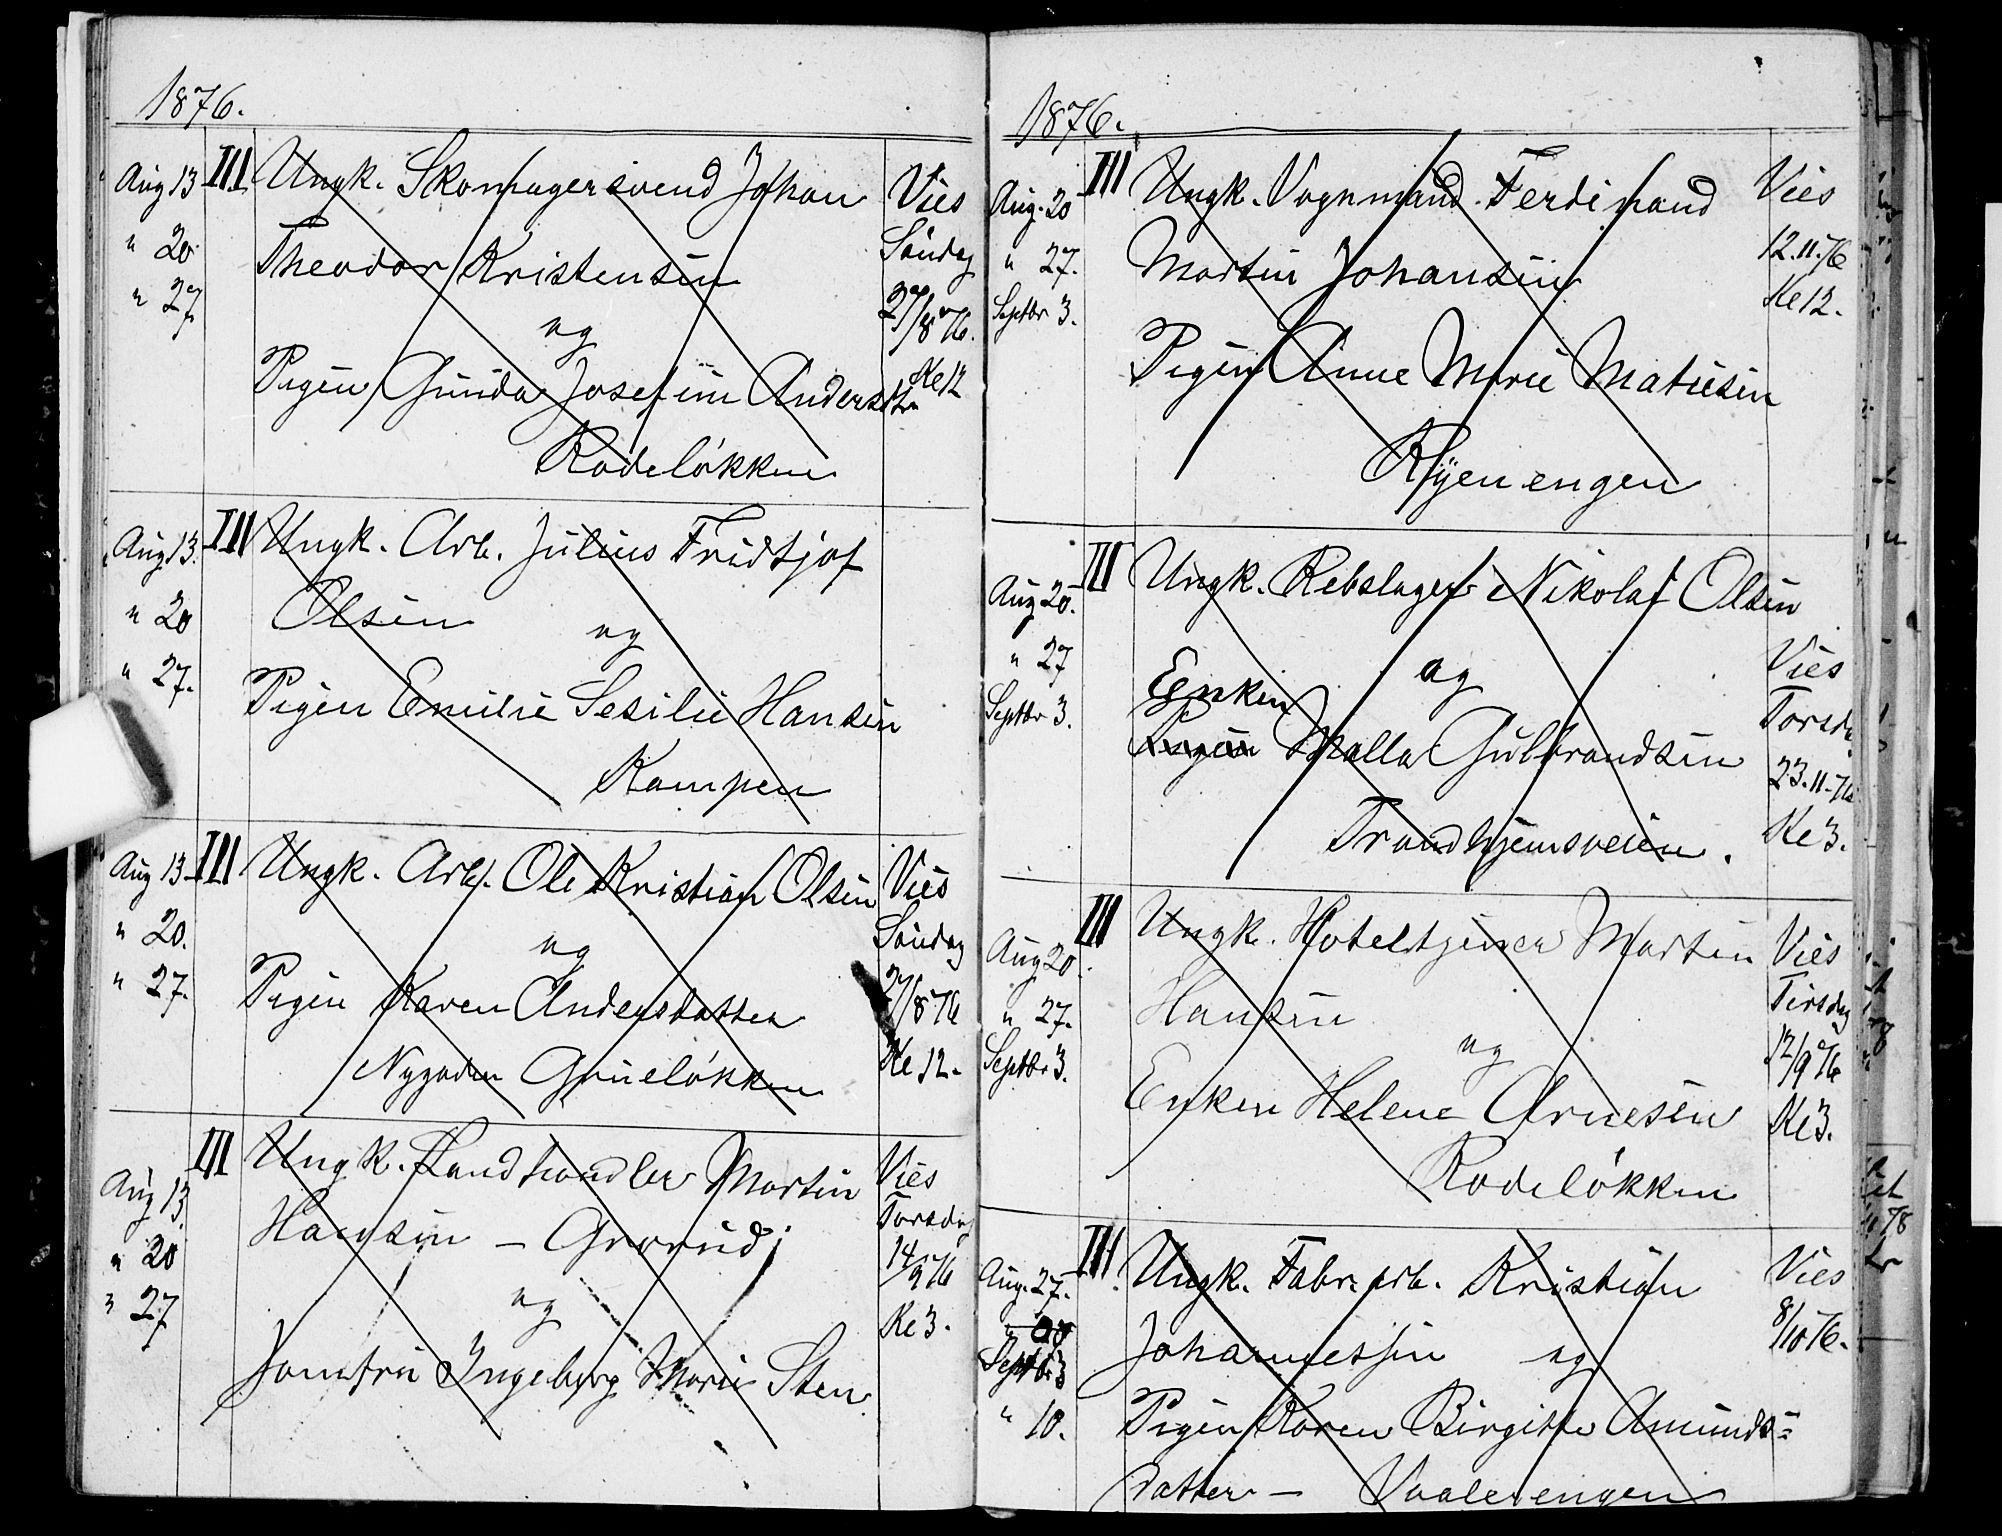 1876.
Aug 13 III Ungk. Skomagersvend Johan Vies
" 20 Theodor Kristensen Søndag
" 27 og 27/8 76.
Pigen Gunda Josefine Andersdtr Kl 12
Rodeløkken
Aug 13. III Ungk. Arb. Julius Fridtjof
" 20 Olsen og
" 27. Pigen Emilie Sesilie Hansen
Kampen
Aug 13 III Ungk. Arb. Ole Kristian Olsen Vies
" 20. og Søndag
" 27. Pigen Karen Andersdatter 27/8 76
Nygaden Grueløkken Kl 12.
Aug 13 III Ungk. Landhandler Martin Vies
" 20 Hansen – Grorud; Torsdag
" 27 og 14/9 76
Jomfru Ingeborg Marie Sten Kl 3.
1876.
Aug. 20 III Ungk. Vognmand Ferdinand Vies
" 27. Martin Johansen 12.11.76
Septbr 3. Kl 12.
Pigen Anne Marie Matiesen
Ryenengen
Aug 20. III Ungk. Rebslager Nikolai Olsen
" 27 og Vies
Septbr 3. Enken Torsda
Pigen Malla Gulbrandsen 23.11.76
Trondhjemsveien. Kl 3.
Aug 20. III Ungk. Hoteltjener Martin Vies
" 27. Hansen Tirsdag
Septbr 3. og 12/9 76
Enken Helene Arnesen Kl 3.
Rodeløkken
Aug. 27. III Ungk. Fabr. arb. Kristian Vies
Septbr 3 Johannessen og 8/10 76.
" 10. Pigen Karen Birgitte Amunds=
datter – Vaalerengen